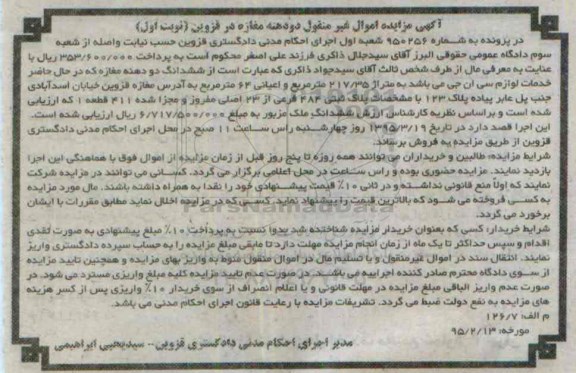 آگهی مزایده اموال غیر منقول دودهنه مغازه در قزوین (نوبت اول)
در پرونده به شماره ۹۵۰۲۵۶ شعبه اول اجرای احکام مدنی دادگستری قزوین حسب نیابت واصله از شعبه
سوم دادگاه عمومی حقوقی البرز آقای سیدجلال ذاکری فرزند علی اصغر محکوم است به پرداخت ۳۵۳/۶۰۰/۰۰۰ ریال با
عنایت به معرفی مال از طرف شخص ثالث آقای سیدجواد ذاکری که عبارت است از ششدانگ دو دهنه مغازه که در حال حاضر
خدمات لوازم سی ان جی می باشد به متراژ ۲۱۷/۳۵ مترمربع و اعیانی ۶۴ مترمربع به آدرس مغازه قزوین خیابان اسدآبادی
جنب پل عابر پیاده پلاک ۱۲۳ با مشخصات پلاک ثبتی ۴۸۴ فرعی از ۲۳ اصلی مفروز و مجزا شده ۴۱۱ قطعه ۱ که ارزیابی
شده است و براساس نظریه کارشناس ارزش ششدانگ ملک مزبور به مبلغ ۶/۷۱۷/۵۰۰/۰۰۰ ریال ارزیابی شده است.
این اجرا قصد دارد در تاریخ ۱۳۹۵/۳/۱۹ روز چهارشنبه راس ساعت ۱۱ صبح در محل اجرای احکام مدنی دادگستری
قزوین از طریق مزایده به فروش برساند.
شرایط مزایده: طالبین و خریداران می توانند همه روزه تا پنج روز قبل از زمان مزایده از اموال فوق با هماهنگی این اجرا
بازدید نمایند. مزایده حضوری بوده و راس ساعت در محل اعلامی برگزار می گردد. کسانی می توانند در مزایده شرکت
نمایند که اولا منع قانونی نداشته و در ثانی ۱۰٪ قیمت پیشنهادی خود را نقدا به همراه داشته باشند. مال مورد مزایده
به کسی فروخته می شود که بالاترین قیمت را پیشنهاد نماید. کسی که در مزایده اخلال نماید مطابق مقررات با ایشان
برخورد می گردد.
شرایط خریدار: کسی که بعنوان خریدار مزایده شناخته شد بدوا نسبت به پرداخت ۱۰٪ مبلغ پیشنهادی به صورت نقدی
اقدام و سپس حداکثر تا یک ماه از زمان انجام مزایده مهلت دارد تا مابقی مبلغ مزایده را به حساب سپرده دادگستری واریز
نمایند. انتقال سند در اموال غیرمنقول و یا تسلیم مال در اموال منقول منوط به واریز بهای مزایده و همچنین تایید مزایده
از سوی دادگاه محترم صادر کننده اجراییه می باشد. در صورت عدم تایید مزایده کلیه مبلغ واریزی مسترد می شود. در
صورت عدم واریز الباقی مبلغ مزایده در مهلت قانونی و یا اعلام انصراف از سوی خریدار ۱۰٪ واریزی پس از کسر هزینه
های مزایده به نفع دولت ضبط می گردد. تشریفات مزایده با رعایت قانون اجرای احکام مدنی می باشد.
م الف: ۱۲۶/۷
مورخه: ۹۵/۲/۱۳
مدیر اجرای احکام مدنی دادگستری قزوین-- سیدیحیی ابراهیمی
ParsNamadData